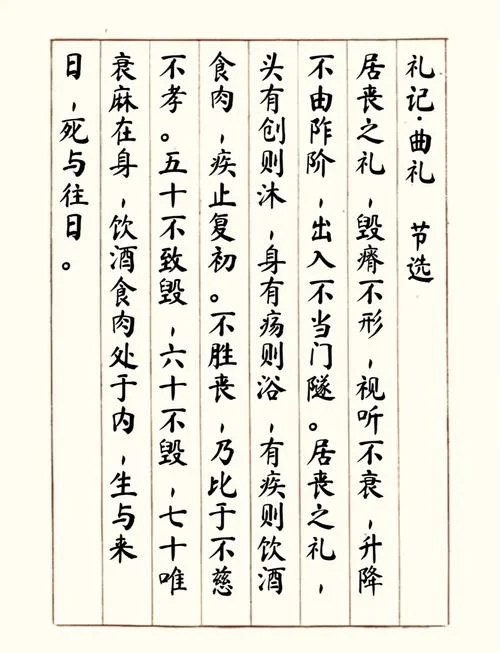 礼记·曲礼 节选
居丧之礼，毁瘠不形，视听不衰，升降
不由阼阶，出入不当门隧。居丧之礼，
头有创则沐，身有疡则浴，有疾则饮酒
食肉，疾止复初。不胜丧，乃比于不慈
不孝。五十不致毁，六十不毁，七十唯
衰麻在身，饮酒食肉处于内，生与来
日，死与往日。